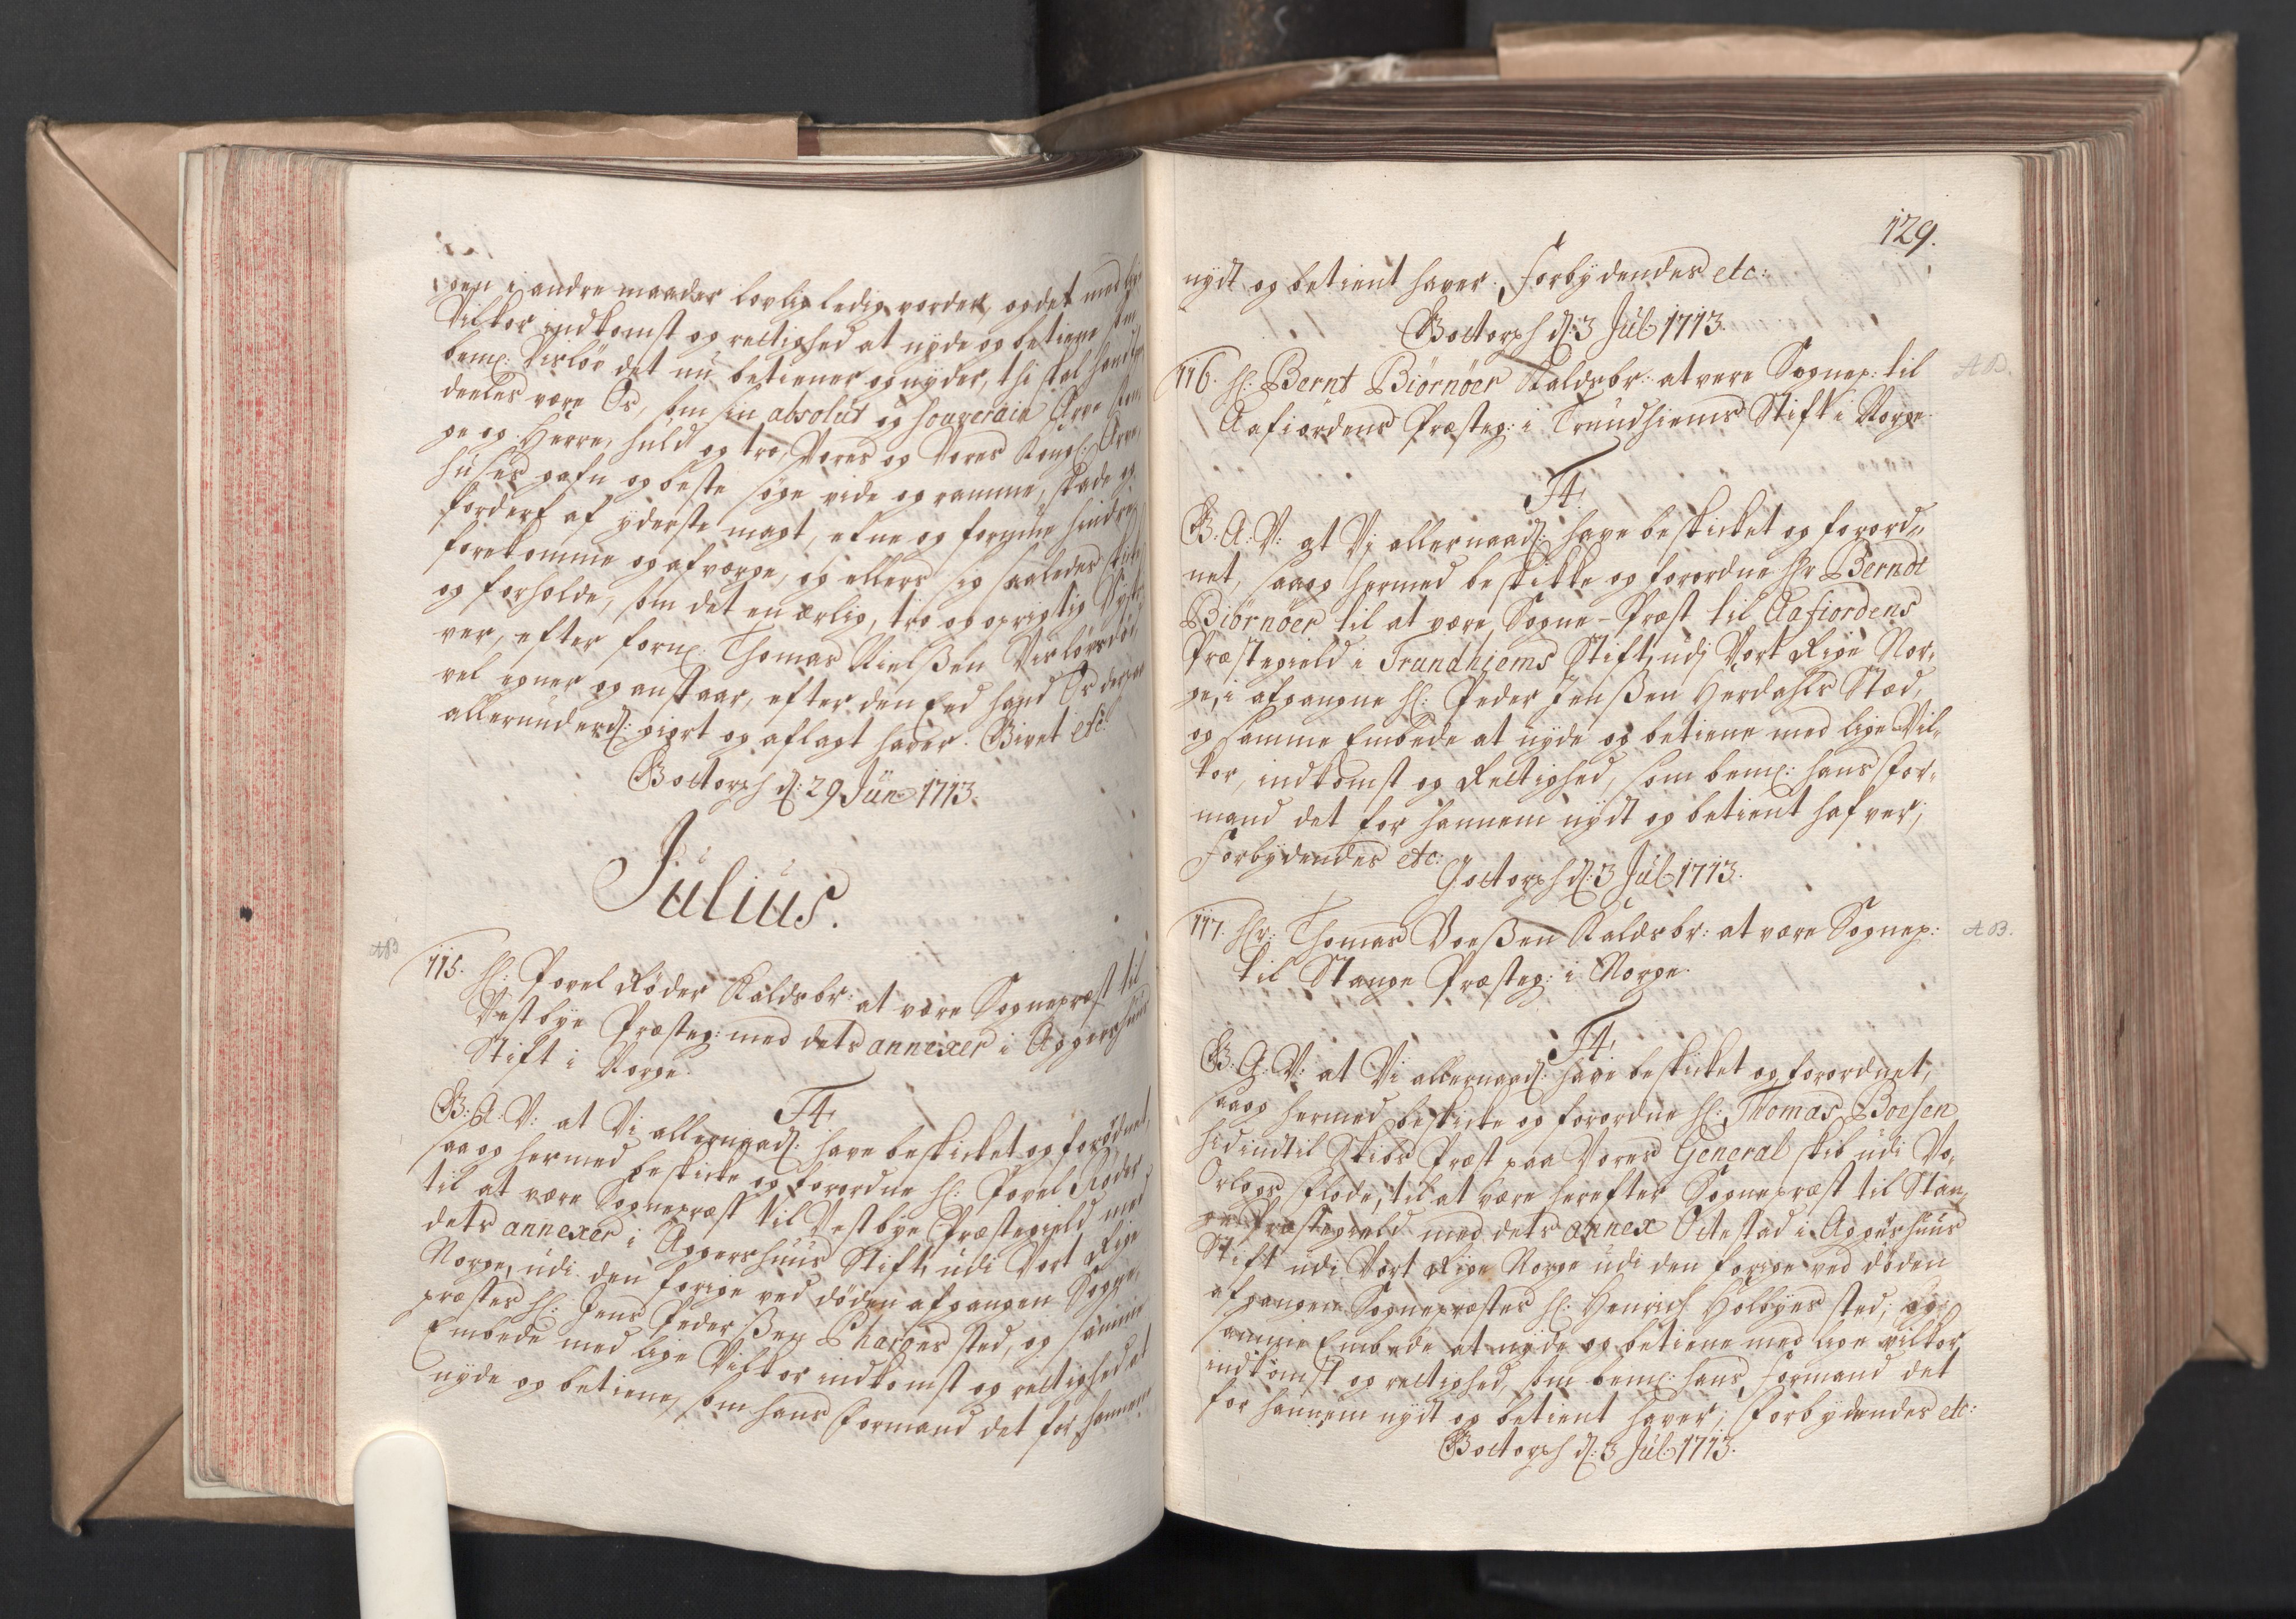 gen i andre maader lovlig ledig vorder, og det med lige
Vilkor indkomst og rettighed at nyde og betiene som
bem: Virløv det nu betiener og nyder, thi skal hand
deeles være Os, som sin absolut og souverain Arve Kon-
ge og Herre, huld og tro, Vores og Vores Kongl: Arve
huses gafn og beste søge vide og ramme, skade og
forderf af yderste magt, efne og formue hindre,
forekomme og afværge, og ellers sig saaledes skicke
og forholde, som det en ærlig, tro og oprigtig
ver, efter forn: Thomas Nielßen Virløvs død,
vel egner og anstaar, efter den Eed hand Os derpaa
allerunderd: giort og aflagt haver. Givet etc:
Gottorph d: 29 Jun 1713.
Julius.
AB
115. H: Povel Røder Kaldsbr: at være Sognepræst til
Vestbye Præsteg: med dets annexer i Aggershuus
Stift i Norge.
F4.
G: A: V: at Vi allernaad: have beskicket og forordnet,
saa og hermed beskicke og forordne H: Povel Røder
til at være Sognepræst til Vestbye Præstegield med
dets annexer i Aggershuus Stift, udi Vort Rige
Norge, udi den forige ved døden afgangen Sogne-
præstes H: Jens Pederßen Pharoes sted, og samme
Embede med lige Vilkor indkomst og rettighed at
nyde og betiene, som hans Formand det for hannem
129.
nydt og betient haver. Forbydendes etc:
Gottorph d: 3 Jul 1713.
116. H: Bernt Biørnøer Kaldsbr: at vere Sognep: til
Aafiordens Præsteg: i Trundhiems Stift i Norge.
AB.
F4.
G: A: V: at Vi allernaad: have beskicket og forord-
net, saa og hermed beskikke og forordne Hr Berndt
Biørnøer til at være Sogne-Præst til Aafiordens
Præstegield i Trundhiems Stift, udi Vort Rige Nor-
ge, i afgangne H: Peder Jenßen Herdahls Stæd,
og samme Embede at nyde og betiene med lige Vil-
kor, indkomst og Rettighed, som bem: hans For-
mand det for hannem nydt og betient hafver;
Forbydendes etc:
Gottorph d: 3 Jul 1713.
117. Hr: Thomas Boeßen Kaldsbr: at være Sognep:
til Stange Præsteg: i Norge.
AB.
F4.
G: A: V: at Vi allernaad: have beskicket og forordnet,
saa og hermed beskicke og forordne H: Thomas Boesen
hidindtil Skibs Præst paa Vores General skib udi Vo-
Orlogs Flode, til at være herefter Sognepræst til Stan-
ge Præstegield med dets annex Ottestad i Aggershuus
Stift udi Vort Rige Norge udi den forige ved døden
afgangen Sognepræstes H: Henrich Holbyes sted, og
samme Embede at nyde og betiene med lige vilkor
indkomst og rettighed, som bem: hans Formand det
for hannem nydt og betient haver; Forbydendes etc:
Gottorph d: 3 Jul 1713.